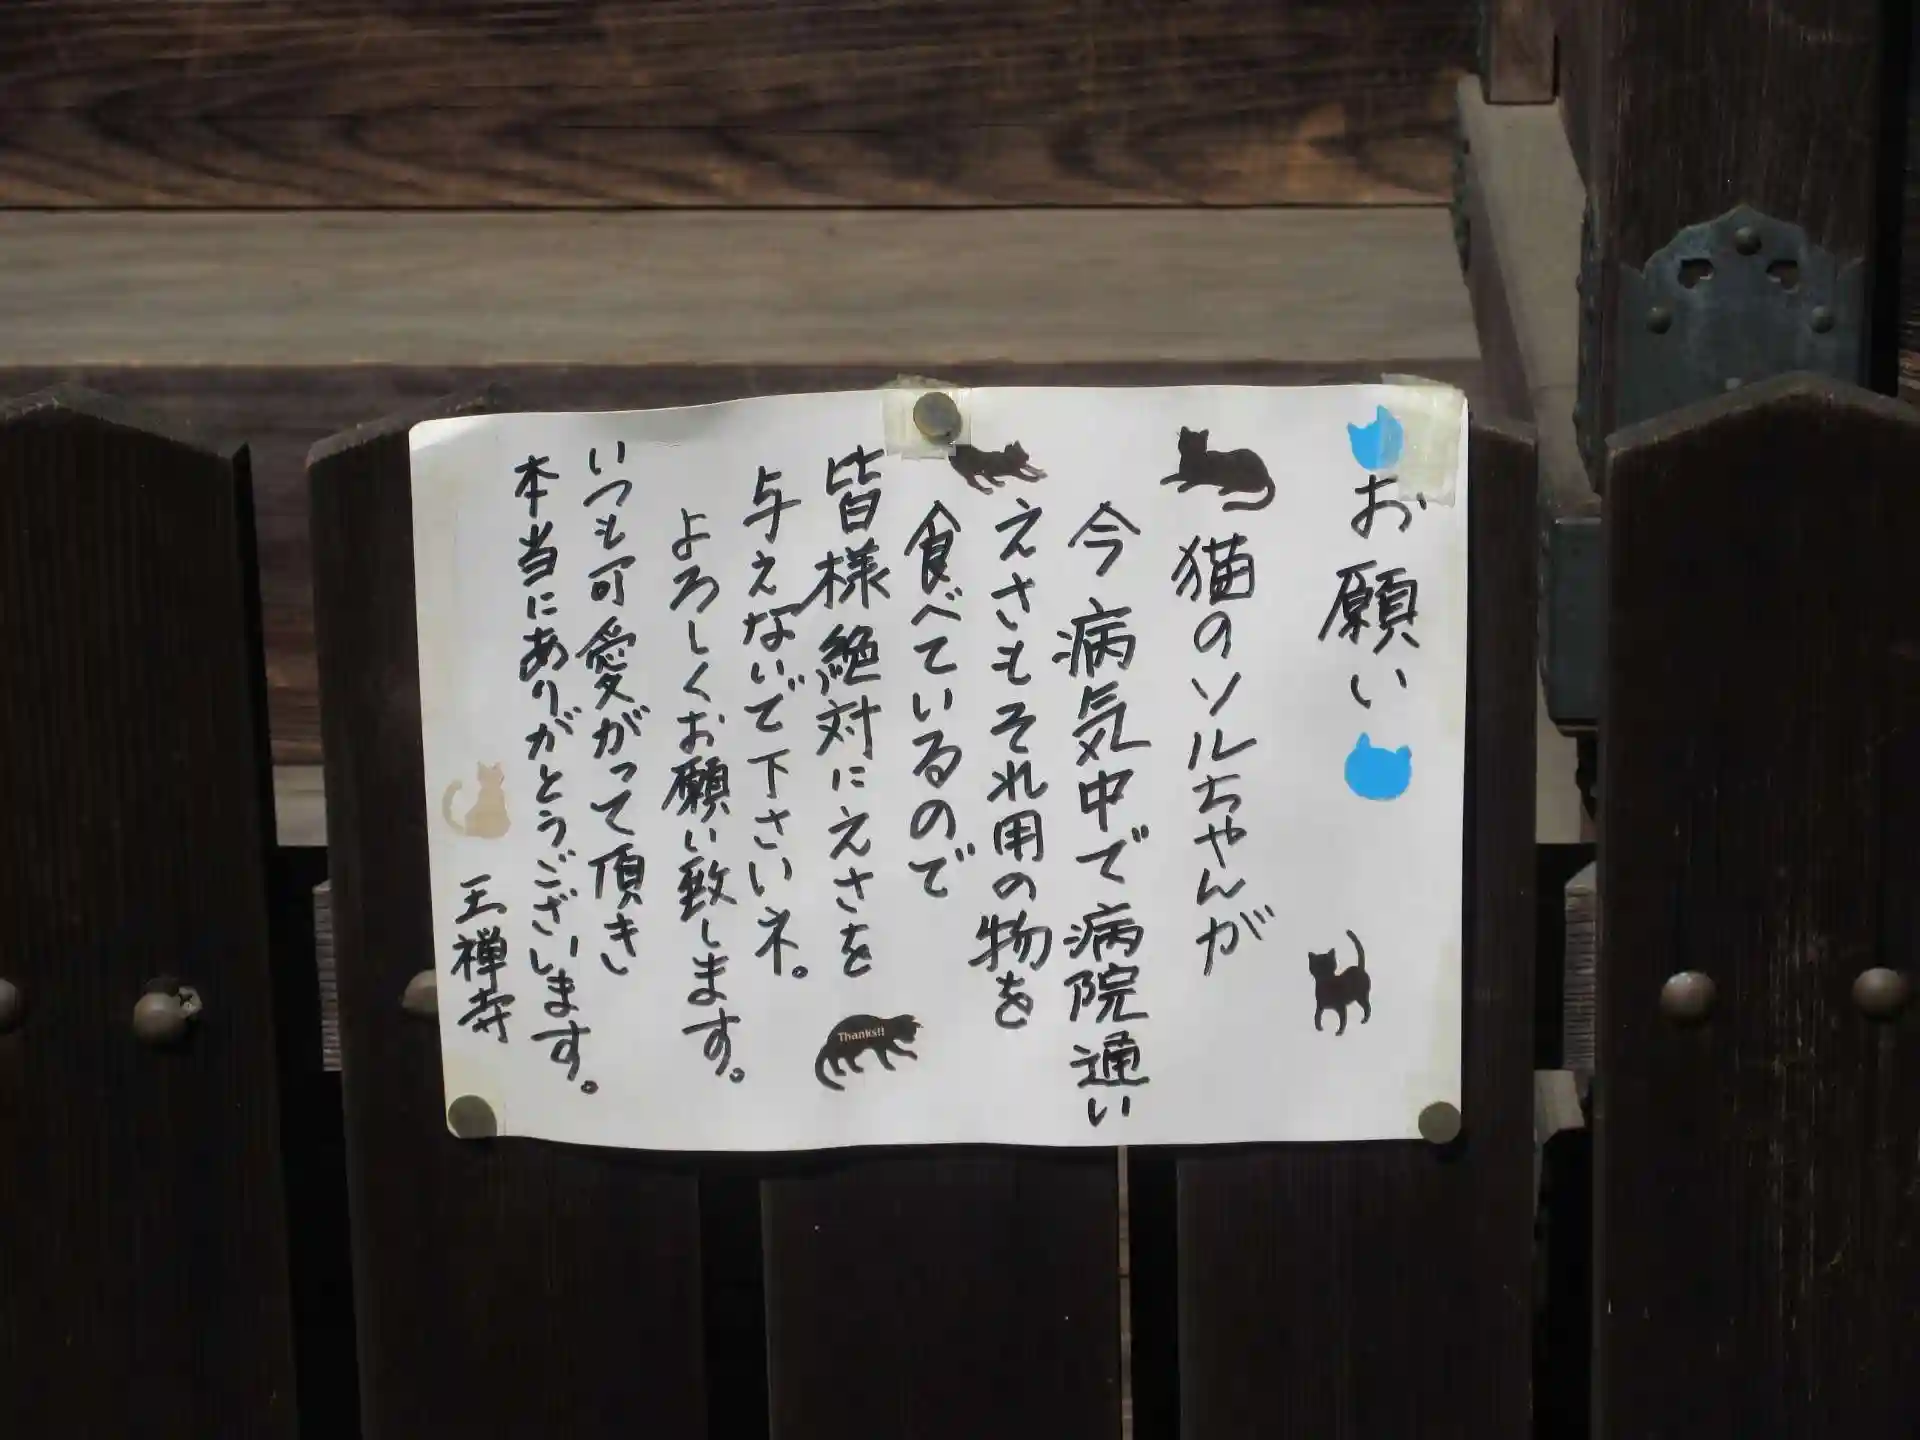 お願い
猫のソルちゃんが
今病気中で病院通い
えさもそれ用の物を
食べているので
皆様絶対にえさを
与えないで下さいネ。
よろしくお願い致します。
いつも可愛がって頂きし
本当にありがとうございます。
王禅寺
Thanks!!